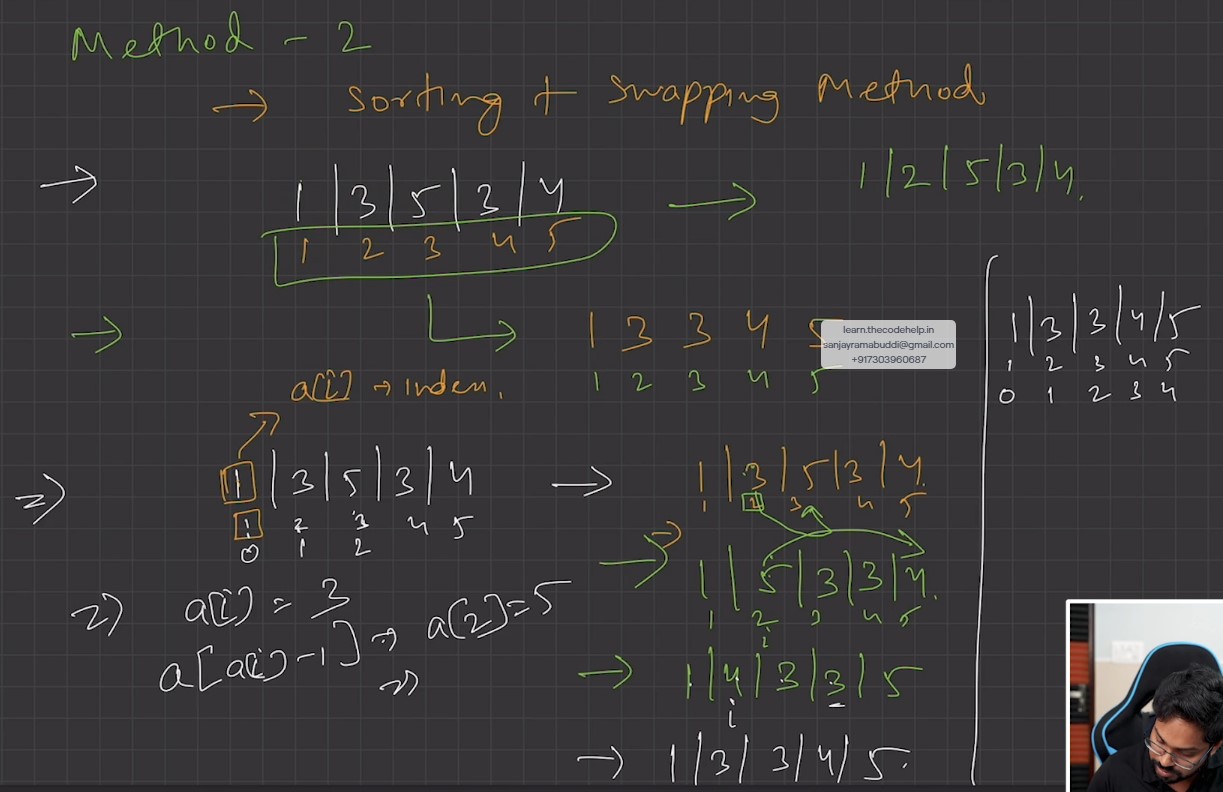 Method - 2
→ Sorting + Swapping Method
→ 1 | 3 | 5 | 3 | 4 → 1 | 2 | 5 | 3 | 4
1 2 3 4 5
→ → 1 3 3 4 5
1 2 3 4 5
learn.thecodehelp.in
sanjayramabuddi@gmail.com
+917303960687
1 | 3 | 3 | 4 | 5
1 2 3 4 5
0 1 2 3 4
a[i] → index.
1 | 3 | 5 | 3 | 4 →
1 2 3 4 5
0 1 2
a[i] = 3
a[a[i]-1] → a[2] = 5
1 | 3 | 5 | 3 | 4
1 2 3 4 5
→ 1 | 5 | 3 | 3 | 4
1 2 3 4 5
i
→ 1 | 4 | 3 | 3 | 5
i
→ 1 | 3 | 3 | 4 | 5